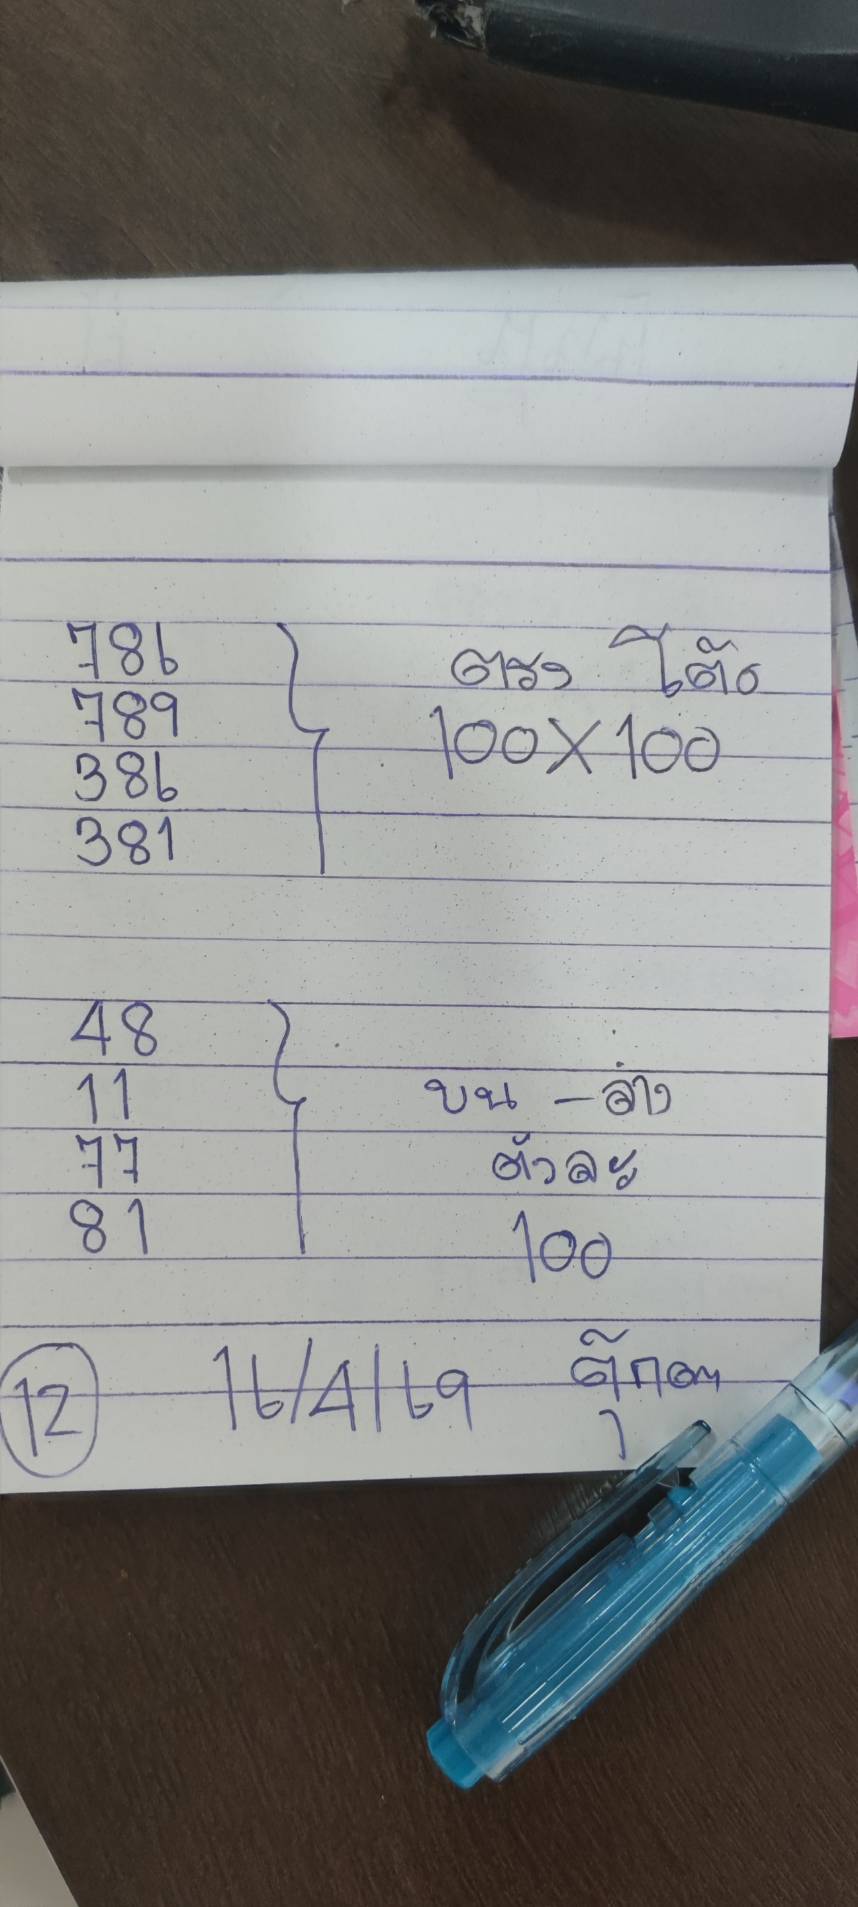 786
789
386
381
ตรง โต๊ด
100X100
48
11
77
81
บน - ล่าง
ตัวละ
100
12
16/4/69